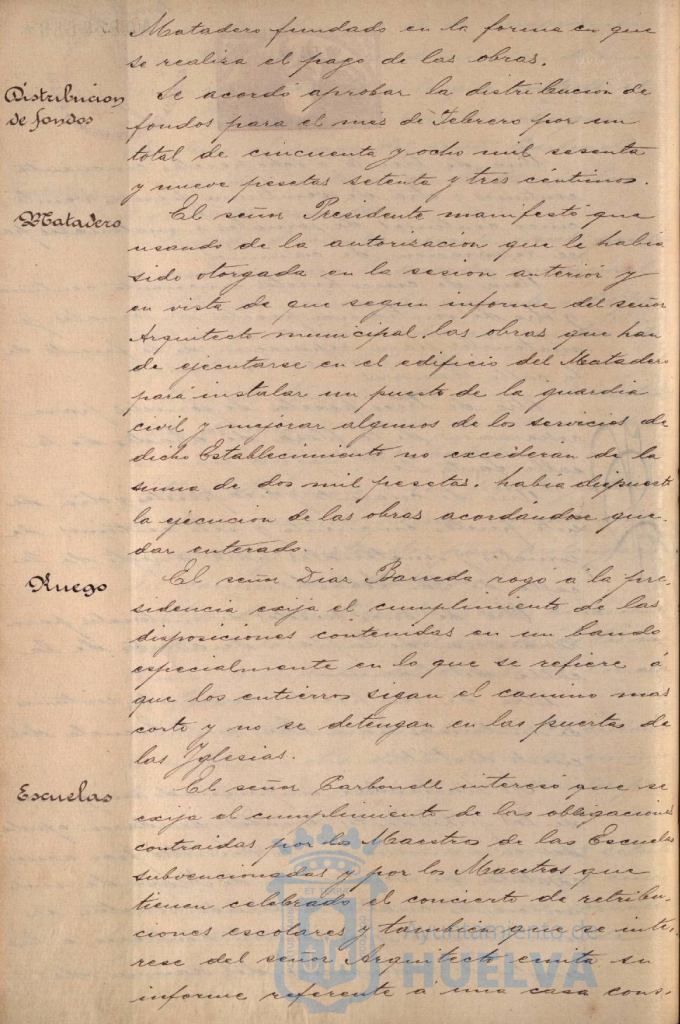 Matadero fundado en la forma en que
se realiza el pago de las obras.
Distribucion
de fondos
Se acordó aprobar la distribucion de
fondos para el mes de Febrero por un
total de cincuenta y ocho mil sesenta
y nueve pesetas setenta y tres céntimos.
Matadero
El señor Presidente manifestó que
usando de la autorizacion que le habia
sido otorgada en la sesion anterior y
en vista de que segun informe del señor
Arquitecto municipal, las obras que han
de ejecutarse en el edificio del Matadero
para instalar un puesto de la guardia
civil y mejorar algunos de los servicios de
dicho Establecimiento no excederán de la
suma de dos mil pesetas, habia dispuesto
la ejecucion de las obras acordándose que-
dar enterado.
Ruego
El señor Diaz Barreda rogó á la pre-
sidencia exija el cumplimiento de las
disposiciones contenidas en un bando
especialmente en lo que se refiere á
que los entierros sigan el camino mas
corto y no se detengan en las puertas de
las Yglesias.
Escuelas
El señor Carbonell interesó que se
exija el cumplimiento de las obligaciones
contraidas por los Maestros de las Escuelas
subvencionadas y por los Maestros que
tienen celebrado el concierto de retribu-
ciones escolares y tambien que se inte-
rese del señor Arquitecto emita su
informe referente á una casa cons-
Ayuntamiento de
HUELVA